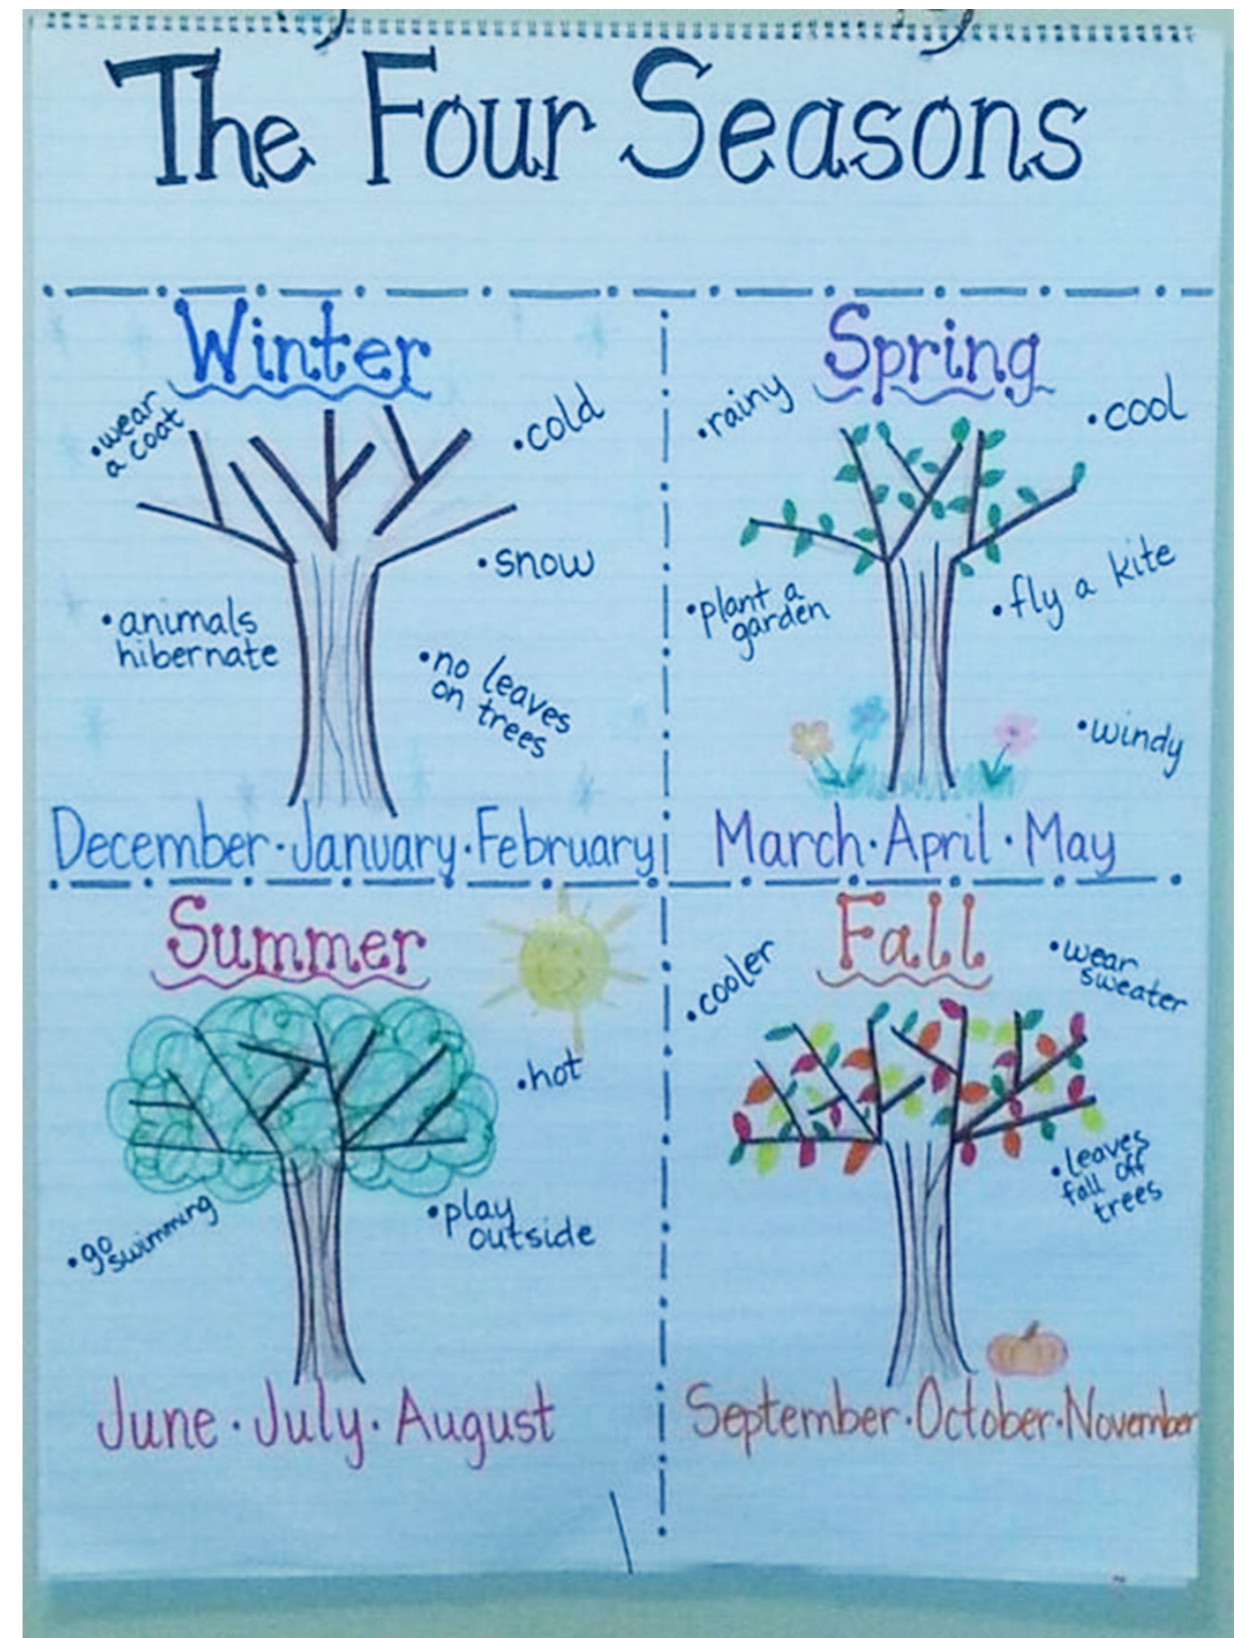 The Four Seasons
Winter
•wear
a coat
•cold
•snow
•animals
hibernate
•no leaves
on trees
December•January•February
Spring
•rainy
•cool
•plant a
garden
•fly a kite
•windy
March•April•May
Summer
•hot
•go
swimming
•play
outside
June•July•August
Fall
•cooler
•wear
sweater
•leaves
fall off
trees
September•October•November